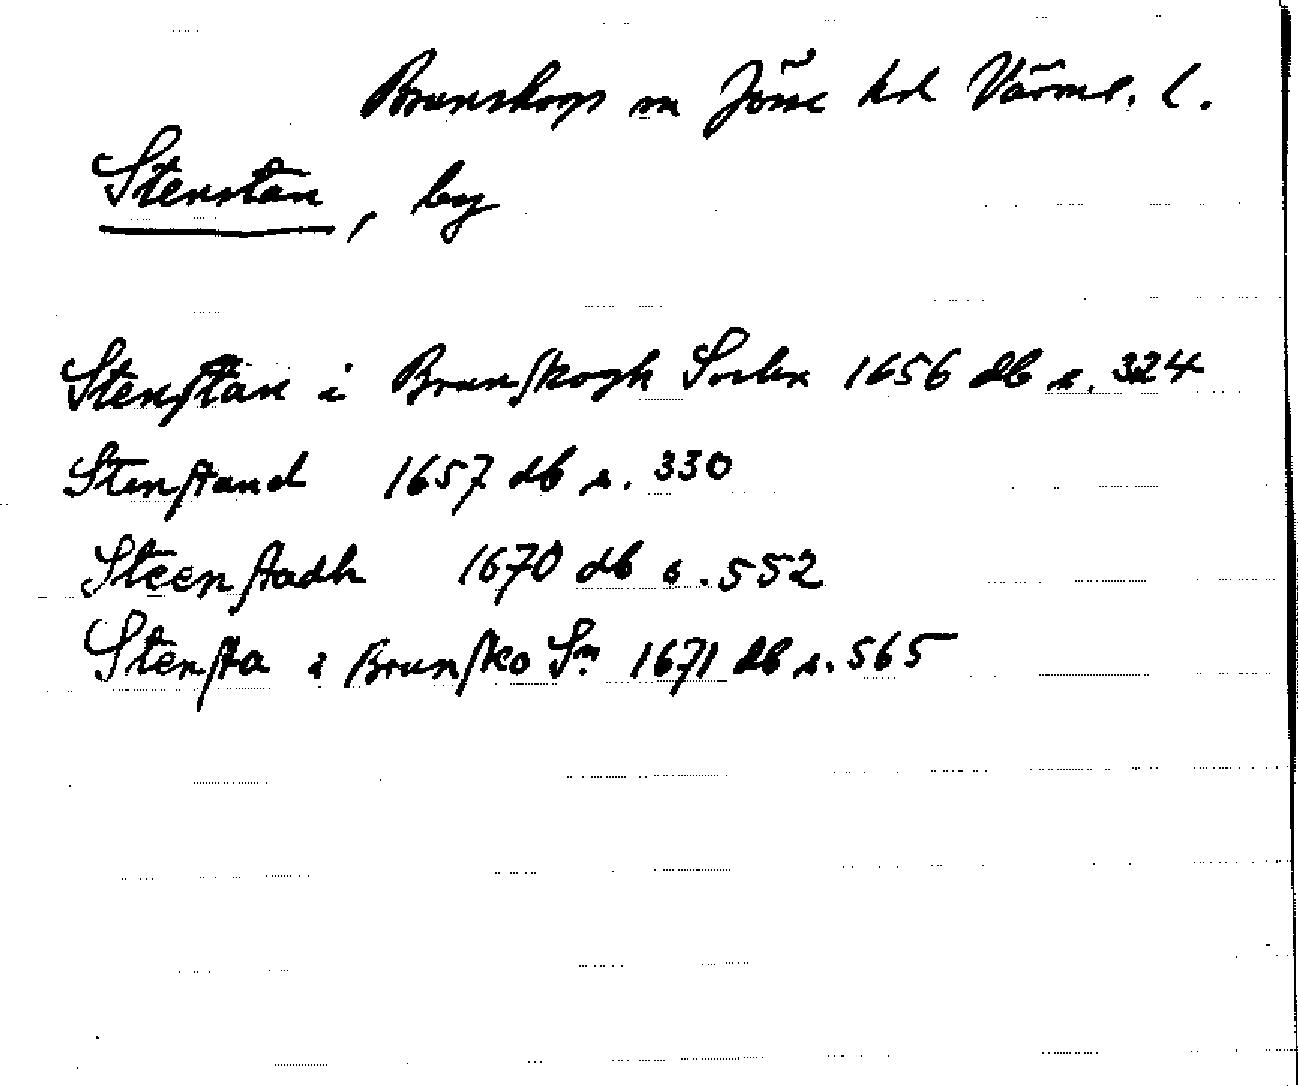 Brunskogs sn Jösse hd Värml. l.
Stenstan, by
Stenſtan i Brunſkogh Sochn 1656 db s. 324
Stenſtand 1657 db s. 330
Steenſtadh 1670 db s. 552
Stenſta i Brunſko Sn 1671 db s. 565